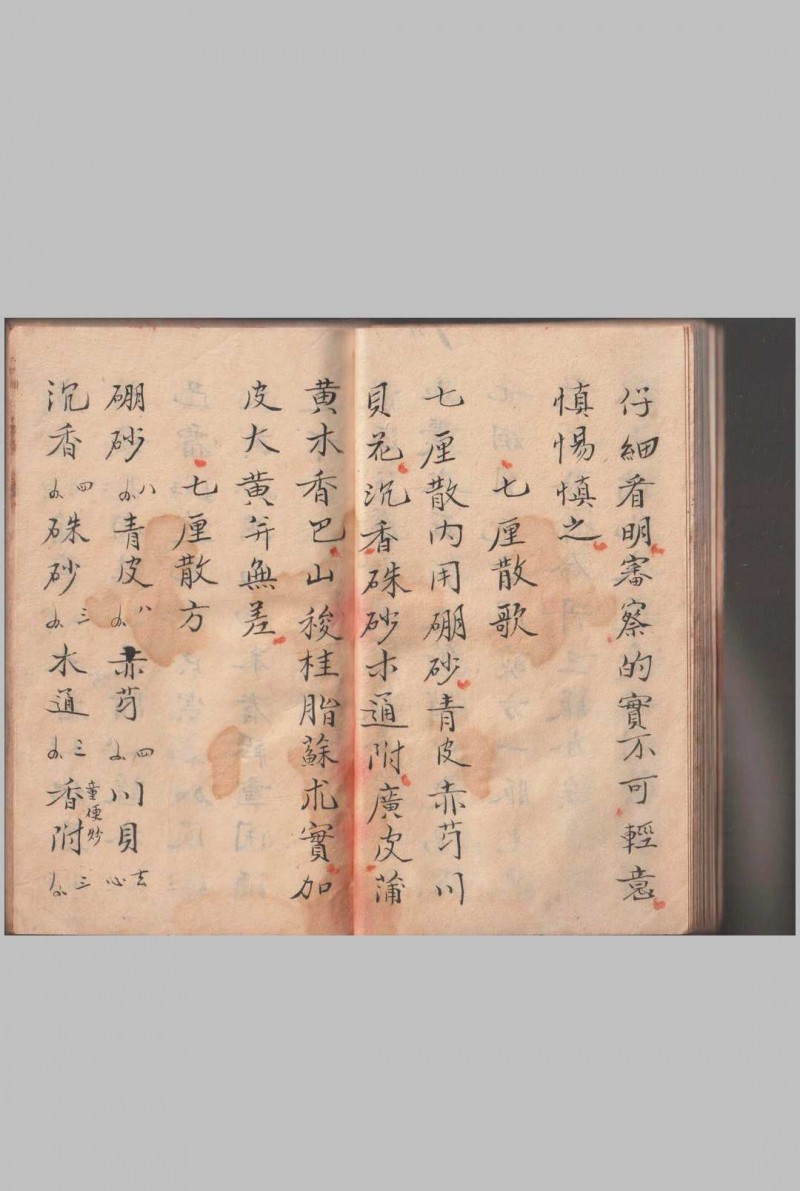 仔細看明審察的實不可輕意
慎惕慎之
七厘散歌
七厘散內用硼砂青皮赤芍川
貝花沉香硃砂木通附廣皮蒲
黃木香巴山稜桂脂蘇朮實加
皮大黃并無差
七厘散方
硼砂八青皮八赤芍四川貝去心
沉香四硃砂三木通三香附童便炒三